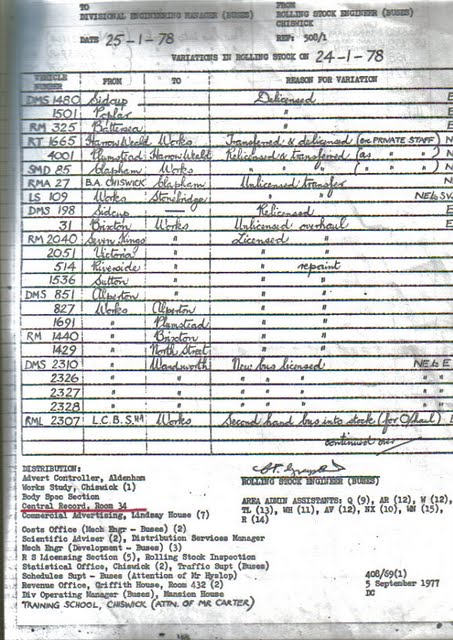 TO FROM
DIVISIONAL ENGINEERING MANAGER (BUSES) ROLLING STOCK ENGINEER (BUSES)
CHISWICK
DATE 25-1-78 REF: 508/1
VARIATIONS IN ROLLING STOCK ON 24-1-78
VEHICLE NUMBER FROM TO REASON FOR VARIATION
DMS 1480 Sidcup Delicensed E
1501 Poplar " E
RM 325 Battersea " E
RT 1665 Harrow Weald Works Transferred & delicensed (ex PRIVATE STAFF) N
4001 Plumstead Harrow Weald Relicensed & transferred (as " " ) N
SMD 85 Clapham Works " " " N
RMA 27 B.A. CHISWICK Clapham Unlicensed transfer N
LS 109 Works Stonebridge " "
DMS 198 Sidcup — Relicensed E
31 Brixton Works Unlicensed overhaul E
RM 2040 Seven Kings " Licensed "
2051 Victoria " " "
514 Riverside " " repaint
1536 Sutton " " "
DMS 851 Alperton " " "
827 Works Alperton " "
1691 " Plumstead " "
RM 1440 " Brixton " "
1429 " North Street " "
DMS 2310 " Wandsworth New bus licensed N E to E
2326 " " " " " " "
2327 " " " " " " "
2328 " " " " " " "
RML 2307 L.C.B.S. HA Works Second hand bus into stock (for O/haul)
continued over
DISTRIBUTION:
Advert Controller, Aldenham
Works Study, Chiswick (1)
Body Spec Section
Central Record, Room 34
Commercial Advertising, Lindsay House (7)
Costs Office (Mech Engr - Buses) (2)
Scientific Adviser (2), Distribution Services Manager
Mech Engr (Development - Buses) (3)
R S Licensing Section (5), Rolling Stock Inspection
Statistical Office, Chiswick (2), Traffic Supt (Buses)
Schedules Supt - Buses (Attention of Mr Hyslop)
Revenue Office, Griffith House, Room 432 (2)
Div Operating Manager (Buses), Mansion House
TRAINING SCHOOL, CHISWICK (ATTN. OF MR CARTER)
ROLLING STOCK ENGINEER (BUSES)
AREA ADMIN ASSISTANTS: Q (9), AR (12), W (12),
TL (13), WH (11), AV (12), NX (10), WN (15),
R (14)
408/69(1)
5 September 1977
DC